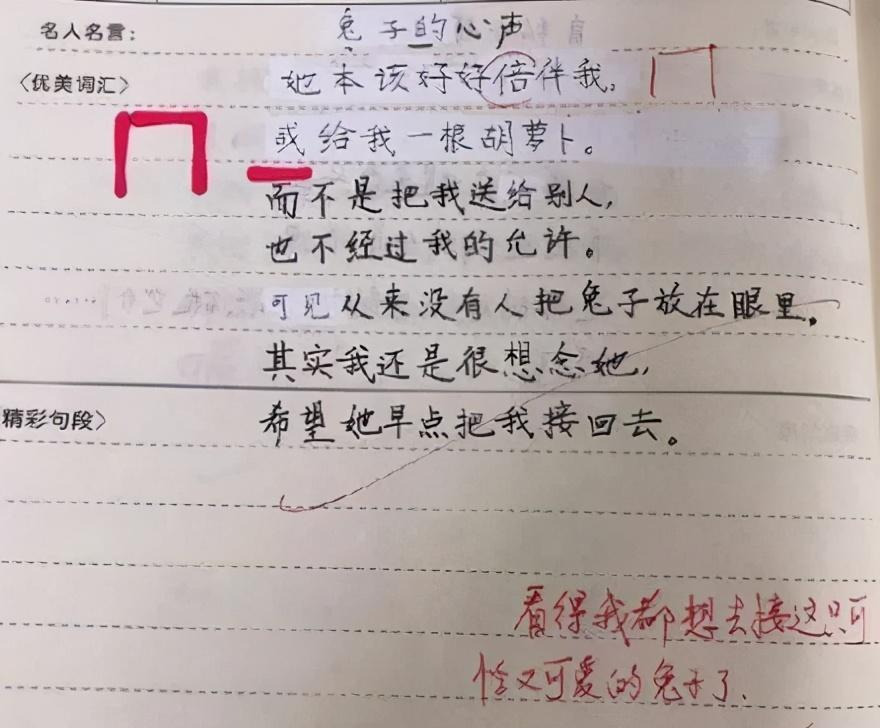 名人名言：
兔子的心声
〈优美词汇〉
她本该好好倍伴我，
或给我一根胡萝卜。
而不是把我送给别人，
也不经过我的允许。
可见从来没有人把兔子放在眼里，
其实我还是很想念她，
精彩句段〉
希望她早点把我接回去。
看得我都想去接这只可
怜又可爱的兔子了.